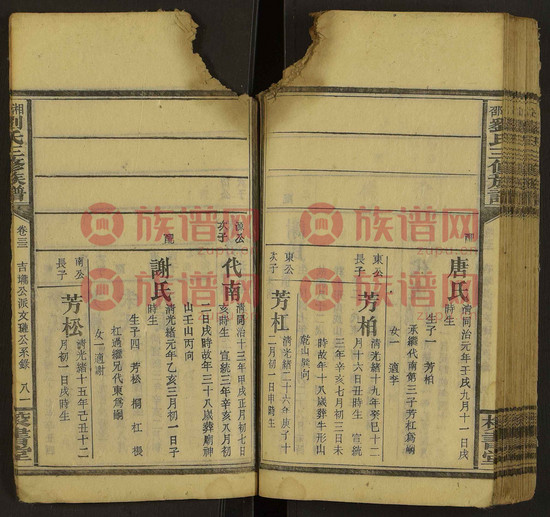 劉氏三修族譜
校書堂
配
唐氏
清同治元年壬戌九月十一日戌
時生
生子一　芳柏
承繼代南第三子芳杠爲嗣
女一　適李
東公
長子
芳柏
清光緒十九年癸巳十二
月十六日丑時生　宣統
三年辛亥七月初三日未
時故年十八歲葬牛形山
乾山巽向
東公
次子
芳杠
清光緒二十六年庚子十
二月初一日申時生
次子
代南
清同治十三年甲戌正月初七日
亥時生　宣統三年辛亥八月初
二日戌時故年三十八歲葬廟神
山壬山丙向
配
謝氏
清光緒元年乙亥三月初一日子
時生
生子四　芳松　桐　杠　根
杠過繼兄代東爲嗣
女一適謝
南公
長子
芳松
清光緒十五年己丑十二
月初一日戌時生
湘
劉氏三修族譜
卷三
吉
公派文
公系錄
八一
校書堂
族谱网
zupu.cn